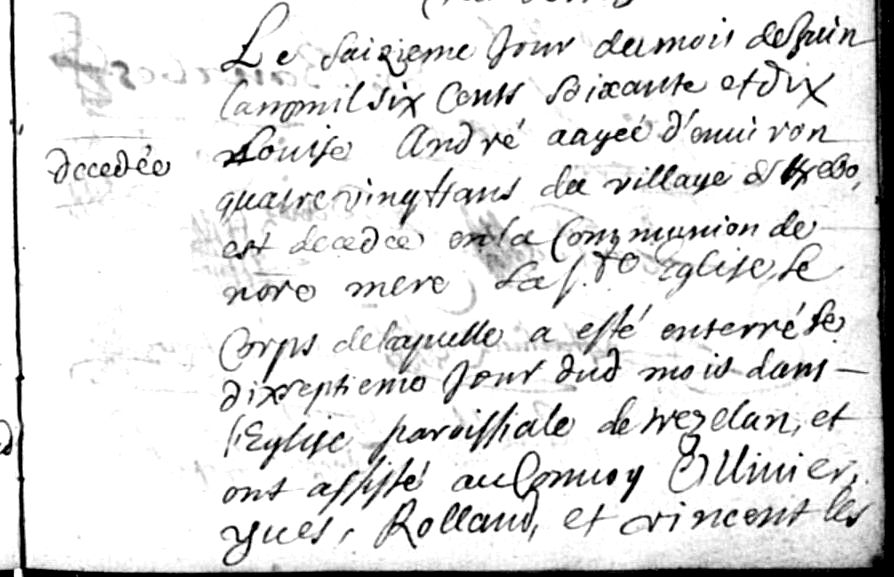 Le saizieme Jour du mois de Juin
lan mil six Cents soixante et dix
decedée
Louise André aagée d'enuiron
quatre vingt ans du village de
est decedee en la Communion de
nore mere La s.te Eglise, le
Corps de laquelle a esté enterré le
dixseptieme Jour dud mois dans
l'Eglise paroissiale de trezelan, et
ont assisté au Conuoy Olliuier,
yues, Rolland, et vincent les